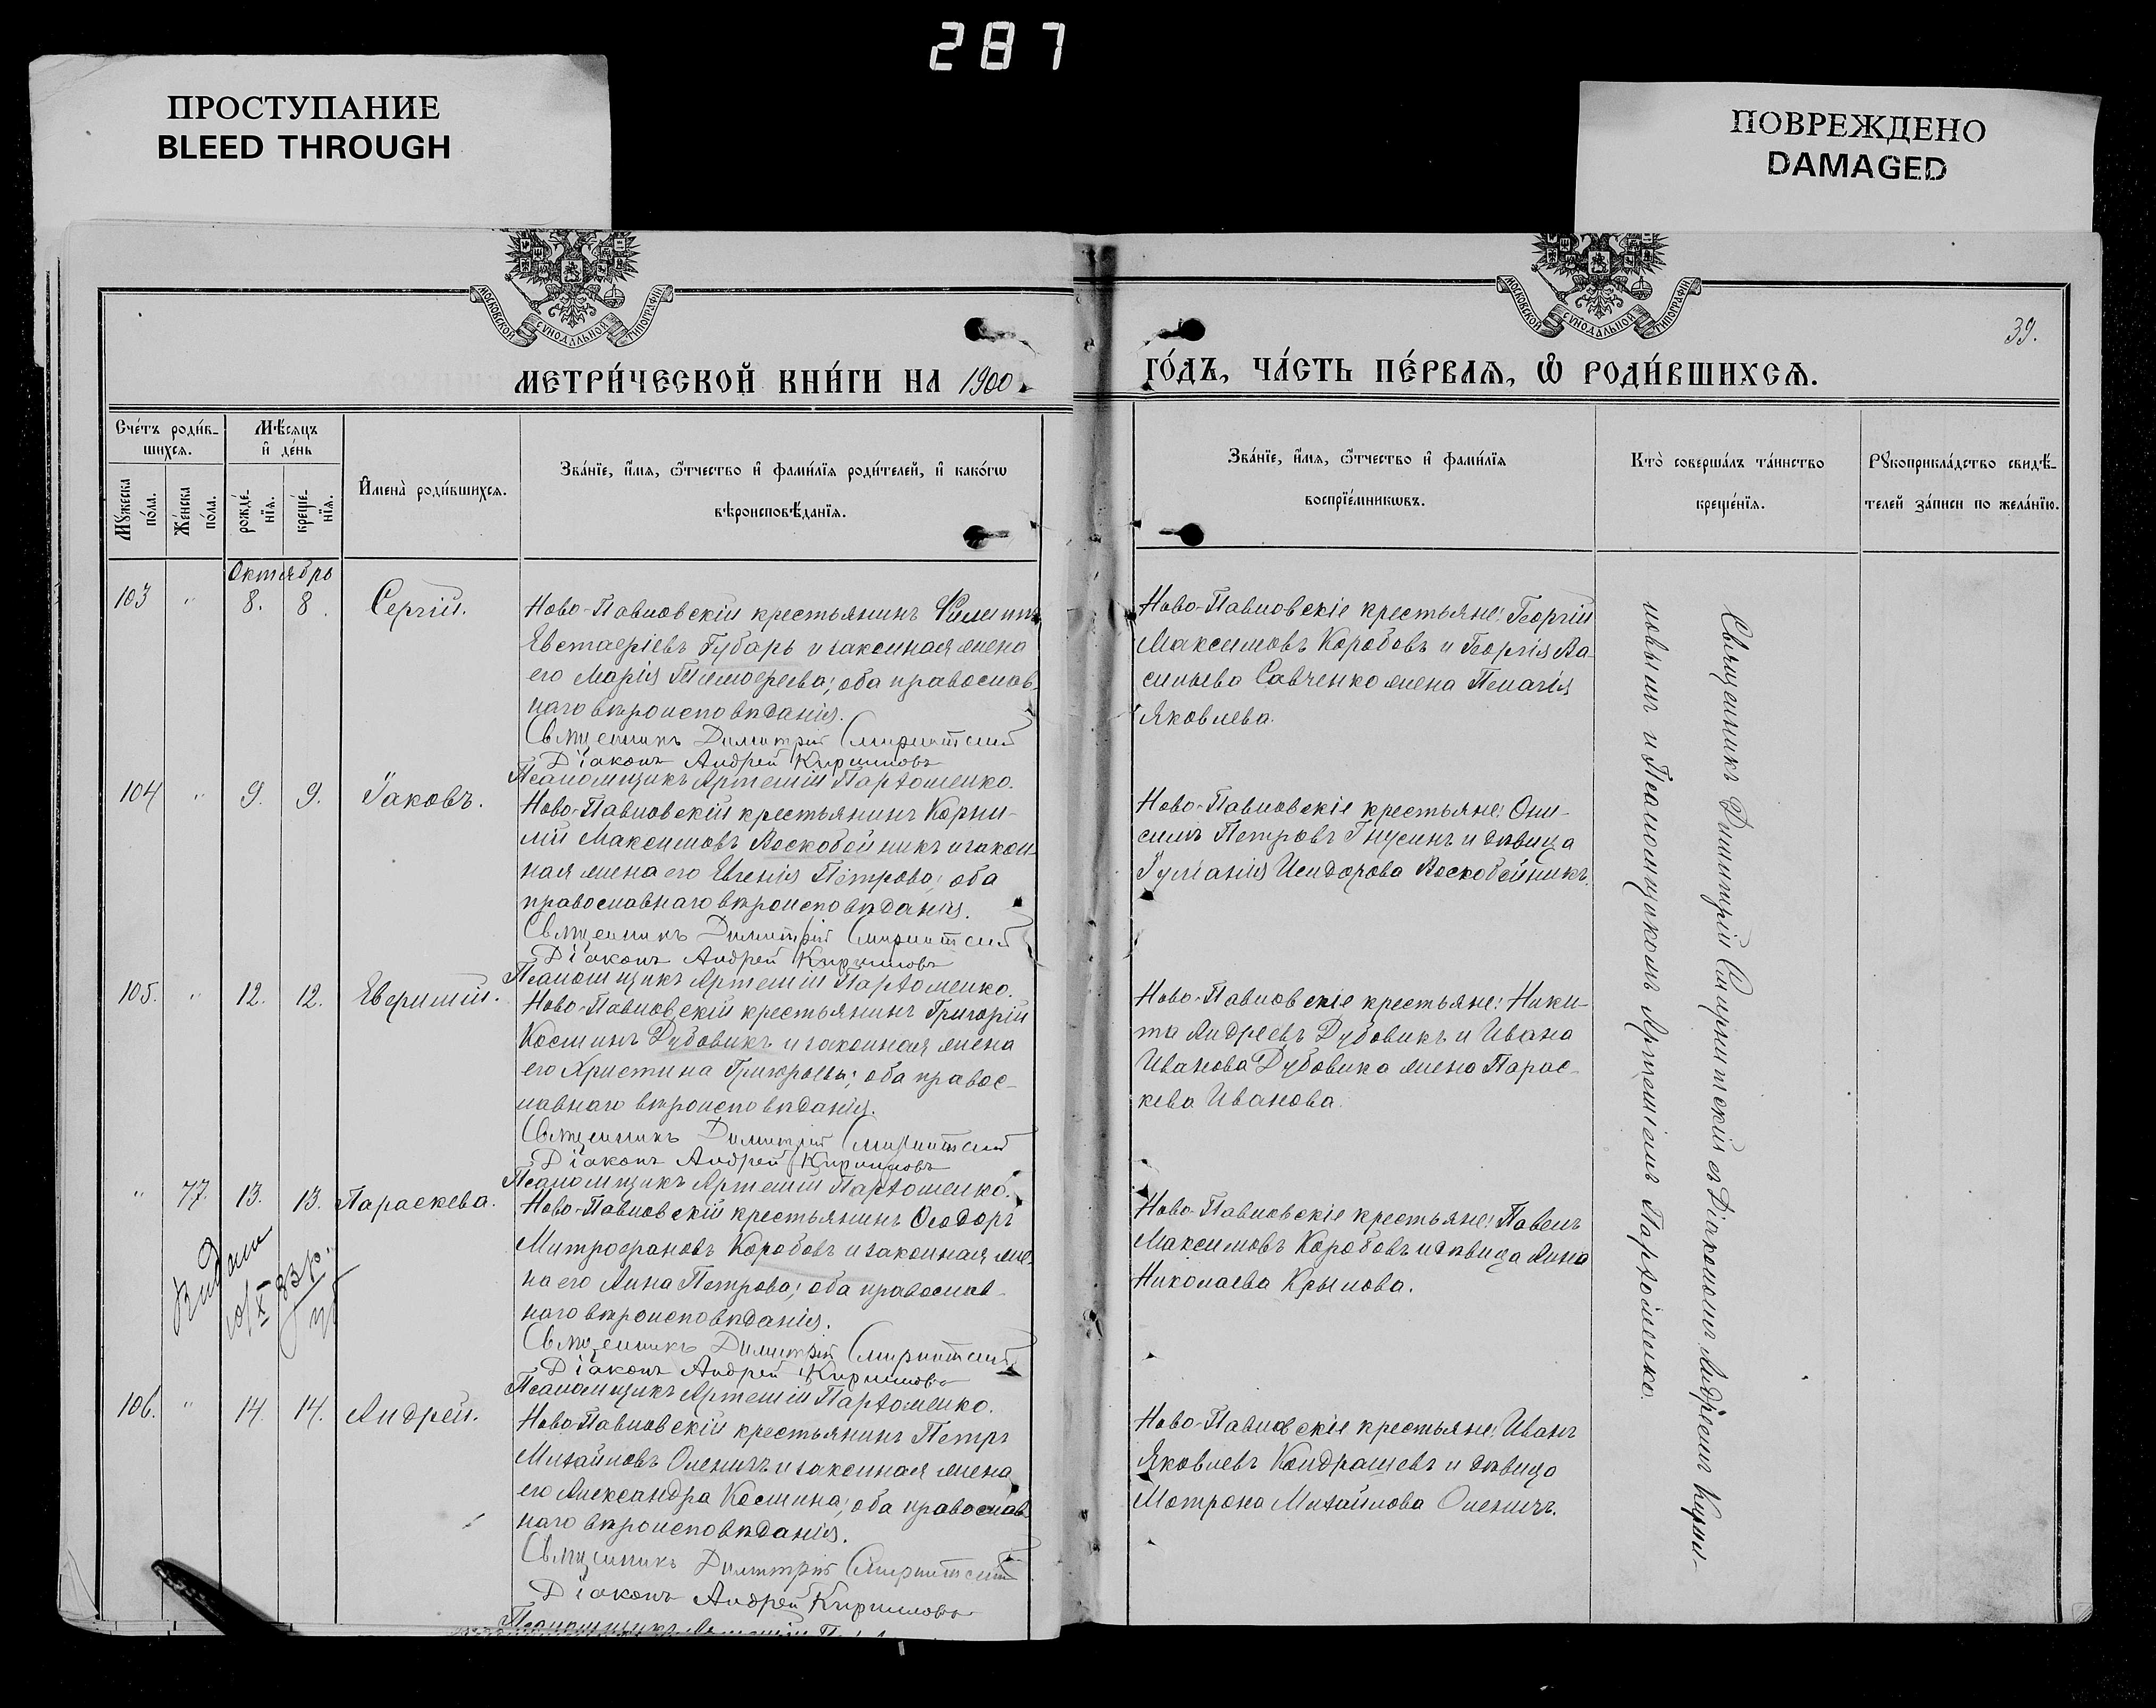 287
ПРОСТУПАНИЕ
BLEED THROUGH
ПОВРЕЖДЕНО
DAMAGED
МОСКОВСКОЙ СѴНОДАЛЬНОЙ ТИПОГРАФІИ
МОСКОВСКОЙ СѴНОДАЛЬНОЙ ТИПОГРАФІИ
39.
МЕТРИ́ЧЕСКОЙ КНИ́ГИ НА 1900
ГО́ДЪ, ЧА́СТЬ ПЕ́РВАѦ, Ѽ РОДИ́ВШИХСѦ.
Сче́тъ роди́в-
шихсѧ.
Мѣ́сѧцъ
и҆ де́нь
Мꙋ́жеска
по́ла.
Же́нска
по́ла.
рожде́-
нїѧ.
креще́-
нїѧ.
И҆мена̀ роди́вшихсѧ.
Зва́нїе, и҆́мѧ, ѻ҆́тчество и҆ фами́лїѧ роди́телей, и҆ како́гѡ
вѣроисповѣ́данїѧ.
Зва́нїе, и҆́мѧ, ѻ҆́тчество и҆ фами́лїѧ
воспрїе́мникѡвъ.
Кто̀ соверша́лъ та́инство
креще́нїѧ.
Рꙋкоприкла́дство свидѣ́-
телей за́писи по жела́нїю.
Октябрь
103 " 8. 8. Сергій.
Ново-Павловскій крестьянинъ Филиппъ
Евстафіевъ Губарь и законная жена
его Марія Тимофеева; оба православ-
наго вѣроисповѣданія.
Священникъ Димитрій
Діаконъ Андрей Кирилловъ
Псаломщикъ Артемій Пархоменко.
Ново-Павловскіе крестьяне: Георгій
Максимовъ Коробовъ и Георгія Ва-
сильева Савченко жена Пелагія
Яковлева.
104 " 9. 9. Іаковъ.
Ново-Павловскій крестьянинъ Корни-
лій Максимовъ Воскобойникъ и закон-
ная жена его Евгенія Петрова; оба
православнаго вѣроисповѣданія.
Священникъ Димитрій
Діаконъ Андрей Кирилловъ
Псаломщикъ Артемій Пархоменко.
Ново-Павловскіе крестьяне: Они-
симъ Петровъ Гнусинъ и дѣвица
Іуліанія Исидорова Воскобойникъ.
105. " 12. 12. Евфимій.
Ново-Павловскій крестьянинъ Григорій
Косминъ Дубовикъ и законная жена
его Христина Григорьева; оба правос-
лавнаго вѣроисповѣданія.
Священникъ Димитрій
Діаконъ Андрей Кирилловъ
Псаломщикъ Артемій Пархоменко.
Ново-Павловскіе крестьяне: Ники-
та Андреевъ Дубовикъ и Ивана
Иванова Дубовика жена Парас-
кева Иванова.
" 77. 13. 13. Параскева.
Ново-Павловскій крестьянинъ Ѳеодоръ
Митрофановъ Коробовъ и законная же-
на его Анна Петрова; оба православ-
наго вѣроисповѣданія.
Священникъ Димитрій
Діаконъ Андрей Кирилловъ
Псаломщикъ Артемій Пархоменко.
Ново-Павловскіе крестьяне: Павелъ
Максимовъ Коробовъ и дѣвица Анна
Николаева Крылова.
106. " 14. 14. Андрей.
Ново-Павловскій крестьянинъ Петръ
Михайловъ Оленичъ и законная жена
его Александра Космина; оба православ-
наго вѣроисповѣданія.
Священникъ Димитрій
Діаконъ Андрей Кирилловъ
Ново-Павловскіе крестьяне: Иванъ
Яковлевъ Кондрашевъ и дѣвица
Матрона Михайлова Оленичъ.
Священникъ Димитрій съ Діакономъ Андреемъ Кирил-
ловымъ и Псаломщикомъ Артеміемъ Пархоменко.